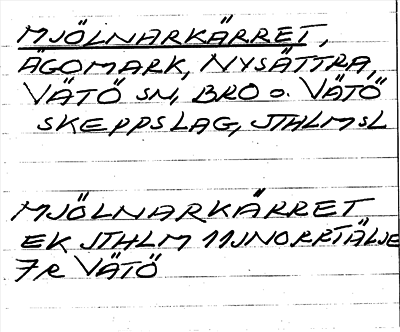 MJÖLNARKÄRRET,
ÄGOMARK, NYSÄTTRA,
VÄTÖ SN, BRO o. VÄTÖ
SKEPPSLAG, STHLMSL
MJÖLNARKÄRRET
EK STHLM 11J NORRTÄLJE
7R VÄTÖ